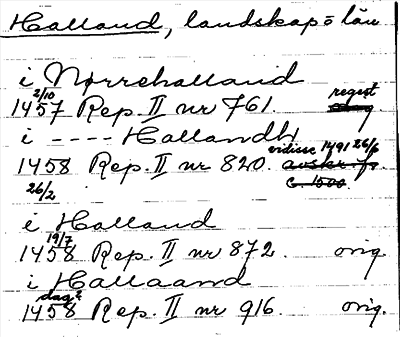 Halland, landskap o län
i Nørrehalland
2/10 regest
1457 Rep. II nr 761.
i ---- Hallandh
vidisse 1491 26/6
1458 Rep. II nr 820. avskr. fr.
26/2 c 1500
i Halland
19/7
1458 Rep. II nr 872. orig
i Hallaand
dag?
1458 Rep. II nr 916. orig.